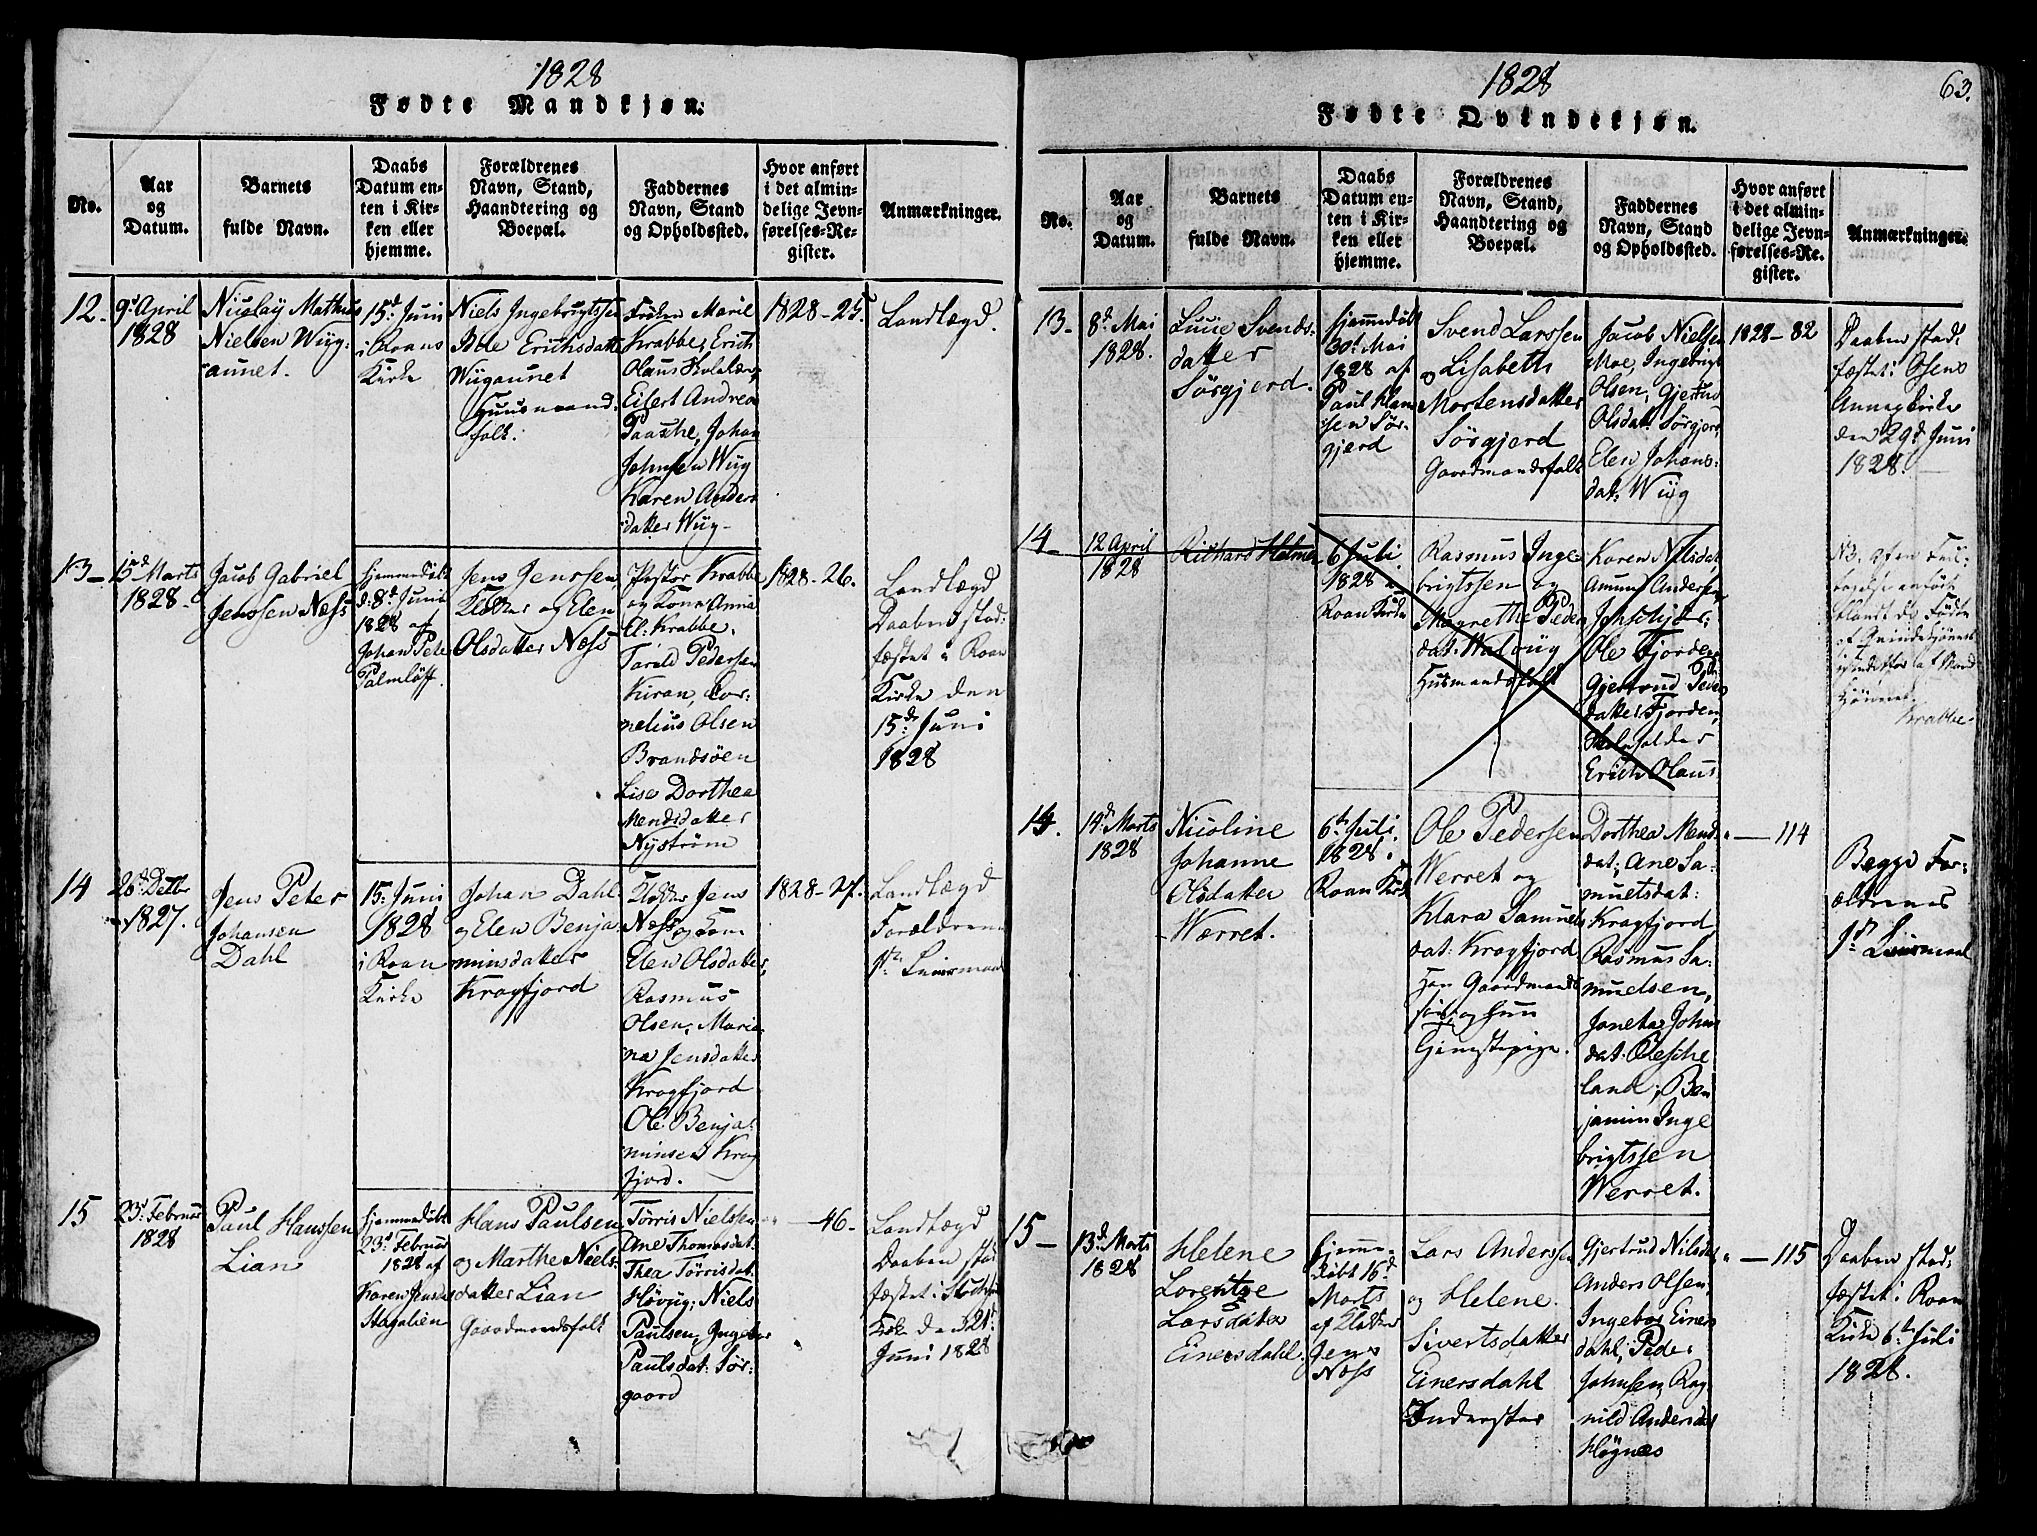 1828
Fødte Mandkjøn.
No.
Aar
og
Datum.
Barnets
fulde Navn.
Daabs
Datum en-
ten i Kir-
ken eller
hjemme.
Forældrenes
Navn, Stand,
Haandtering og
Boepæl.
Faddernes
Navn, Stand
og Opholdssted.
Hvor anført
i det almin-
delige Jevn-
førelses-Re-
gister.
Anmærkninger.
12-
9d April
1828
Nicolay Mathias
Nielsen Wiig-
aunet.
15d Juni
i Roans
Kirke
Niels Ingebrigtsen
Bele Erichsdatter
Wiigaunet
Huusmand
folk.
Frøken Marie
Krabbe, Erich
Olaus Skolelær,
Eilert Andreas
Paasche, Johan
Johnsen Wiig
Karen Anders
datter Wiig-
1828-25.
Landlægd.
13-
15d Marts
1828-
Jacob Gabriel
Jenssen Næss
hjemmedøbt
d: 8d Juni
1828 af
Johan Peter
Palmløff.
Jens Jenssen
Klokker og Elen
Olsdatter Næss
Pastor Krabbe
og Kone Anna
El: Krabbe,
Tarald Pedersen
Kiran, Cor-
nelius Olsen
Brandsøen
Lise Dorthea
Mendsdatter
Nystrøm
1828-26.
Landlægd
Daaben stad-
fæstet i Roan
Kirke den
15de Juni
1828
14
26d Decbr
1827.
Jens Peter
Johansen
Dahl
15: Juni
1828
i Roan
Kirke
Johan Dahl
og Elen Benja-
minsdatter
Kragfjord
Klokker Jens
Næss og Kone
Elen Olsdatter,
Rasmus
Olsen, Maria-
na Jensdatter
Kragfjord
Ole Benja-
minsen Krag
fjord.
1828-27.
Landlægd
Forældrenes
1ste Leiermaal
15
23d Februar
1828
Paul Hanssen
Lian
hjemmedøbt
23d Februar
1828 af
Karen Jensdatter
Hagalien
Hans Paulsen
og Marthe Niels-
datter Lian
Gaardmandsfolk
Tørris Nielssen
Ane Thomasdat:
Thea Tørrisdat:
Høvug; Niels
Paulsen, Ingebor
Paulsdat: Sør-
gaard
-46-
Landlægd
Daaben stad-
fæstet i
Kirke den 21d
Juni 1828
1828
63.
Fødte Qvindekjøn.
No.
Aar
og
Datum.
Barnets
fulde Navn.
Daabs
Datum en-
ten i Kir-
ken eller
hjemme.
Forældrenes
Navn, Stand,
Haandtering og
Boepæl.
Faddernes
Navn, Stand
og Opholdssted.
Hvor anført
i det almin-
delige Jevn-
førelses-Re-
gister.
Anmærkninger.
13-
8d Mai
1828.
Lucie Svends-
datter
Sørgjerd.
hjemmedøbt
30d Mai
1828 af
Paul Han
sen Sør-
gjerd
Svend Larssen
og Lisabeth
Mortensdatter
Sørgjerd
Gaardmandsfolk
Jacob Nielsen
Moe, Ingebrigt
Olsen, Gjertrud
Olsdat: Sørgjerd
Elen Johans-
dat: Wiig
1828-82
Daaben stad-
fæstet i Osens
Annexkirke
den 29d Juni
1828.
14-
12 April
1828
Richard Holmer
6 Juli
1828
Roan Kirke
Rasmus Inge
brigtssen og
Magrethe Peder
dat: Waloug
Husmandsfolk
Karen Nilsdat
Anders Andersen
Ole Fjorden
Gjertrud Peder
datter Fjorden,
Skoleholder
Erich Olaus
No. af en Feil-
tagelse anført
blandt de Fødte
af Qvindekjønnet
istedetfor af Mand
kjønnet.
Krabbe
14.
14d Marts
1828
Nicoline
Johanne
Olsdatter
Werret.
6te Juli
1828.
Roan Kirke
Ole Pedersen
Werret og
Klara Samuels
dat: Kragfjord
Han Gaardmands
søn og hun
Tjenestepige.
Dorthea Mend
dat; Ane Sa-
muelsdat:
Kragfjord
Rasmus Sa-
muelsen,
Janeta Johan
dat:
land; Ben
jamin Inge
brigtssen
Werret.
-114
Begge For-
ældrenes
1ste Leiermaal
15-
13d Marts
1828
Helene
Lorentze
Larsdatter
Einersdahl.
hjemme-
døbt 16d
Marts
af Klokker
Jens
Næss
Lars Anderssen
og Helene
Sivertsdatter
Einersdahl
Inderster
Gjertrud Nilsdat
Anders Olsen,
Ingebor Einers
dahl, Peder
Johnsen, Rag
nild Andersdat
Høgnæs
-115
Daaben stad-
fæstet i Roan
Kirke 6te Juli
1828.